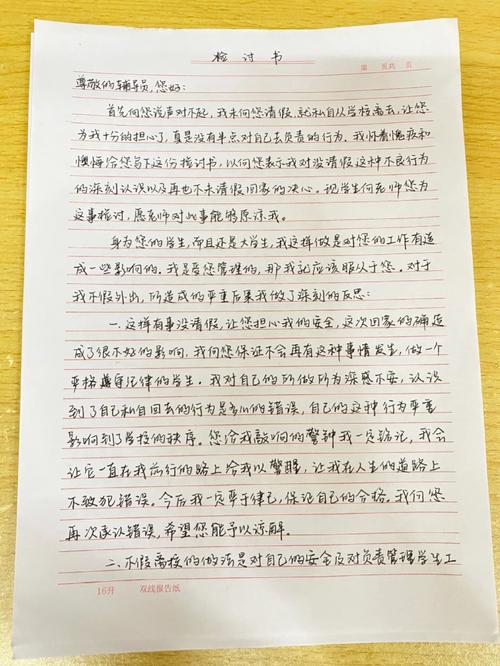 检讨书
第 页共 页
尊敬的辅导员，您好：
首先向您说声对不起，我未向您请假，就私自从学校离去，让您
为我十分的担心了，真是没有半点对自己去负责的行为。我怀着愧疚和
懊悔给您写下这份检讨书，以向您表示我对没请假这种不良行为
的深刻认识以及再也不未请假回家的决心。现学生向老师您为
这事检讨，愿老师对此事能够原谅我。
身为您的学生，而且还是大学生，我这样做是对您的工作有造
成一些影响的。我是受您管理的，那我就应该服从于您。对于
我不假外出，所造成的严重后果我做了深刻的反思：
一、这样有事没请假，让您担心我的安全，这次回家的确造
成了很不好的影响，我向您保证不会再有这种事情发生，做一个
严格遵守纪律的学生。我对自己的所做所为深感不安，认识
到了自己私自回去的行为是多么的错误，自己的这种行为严重
影响到了学校的秩序。您给我敲响的警钟我一定铭记，我会
让它一直在我前行的路上给我以警醒，让我在人生的道路上
不敢犯错误。今后我一定严于律己，保证自己的合格。我向您
再次承认错误，希望您能予以谅解。
二、不假离校的做法是对自己的安全及对负责管理学生工
16开 双线报告纸